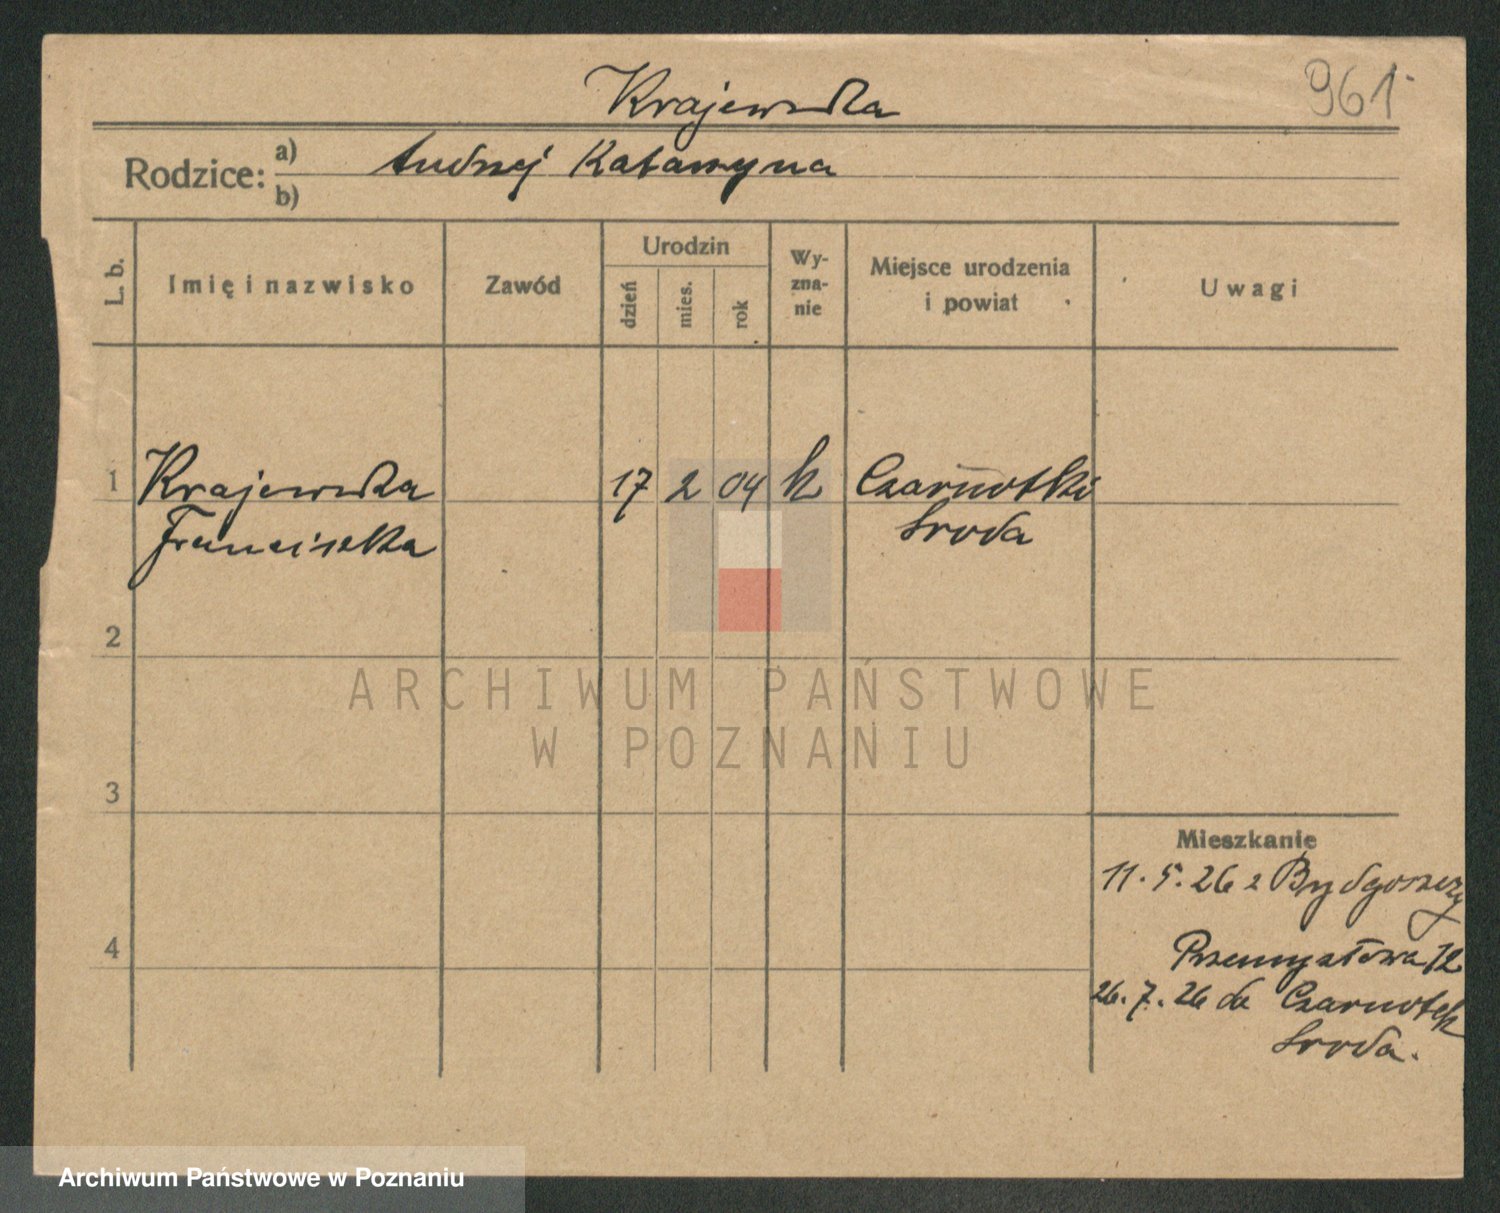 961
Krajewska
Rodzice: a) Andrzej Katarzyna
b)
L. b.
Imię i nazwisko
Zawód
Urodzin
dzień
mies.
rok
Wy-
zna-
nie
Miejsce urodzenia
i powiat
Uwagi
1 Krajewska 17 2 04 k Czarnotki
Franciszka Sroda
2
ARCHIWUM PAŃSTWOWE
W POZNANIU
3
Mieszkanie
11.5.26 z Bydgoszczy
4
Przemysłowa 12
26.7.26 do Czarnotek
Sroda.
Archiwum Państwowe w Poznaniu